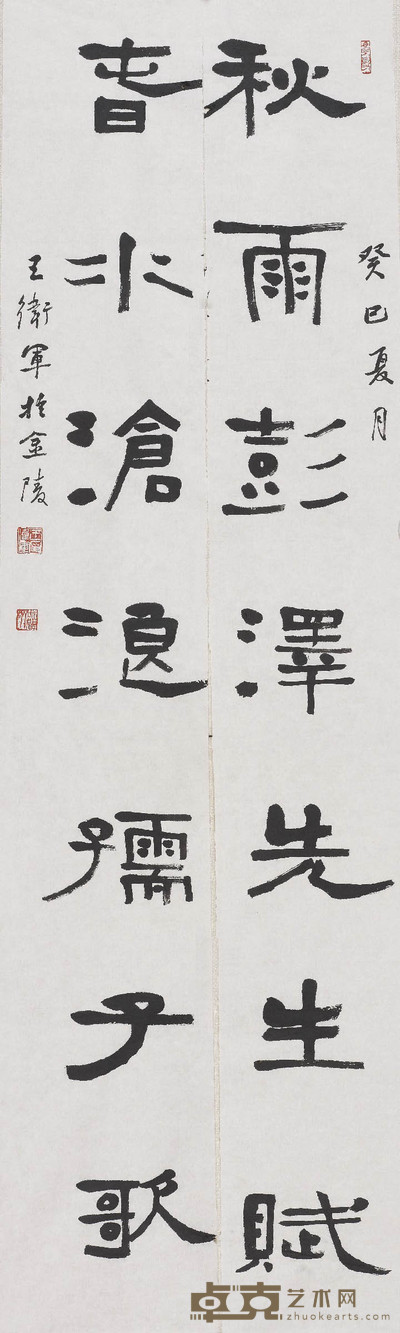 癸巳夏月
秋雨彭澤先生賦
旾水滄浪孺子歌
王衛軍於金陵
卓克艺术网
zhuokearts.com